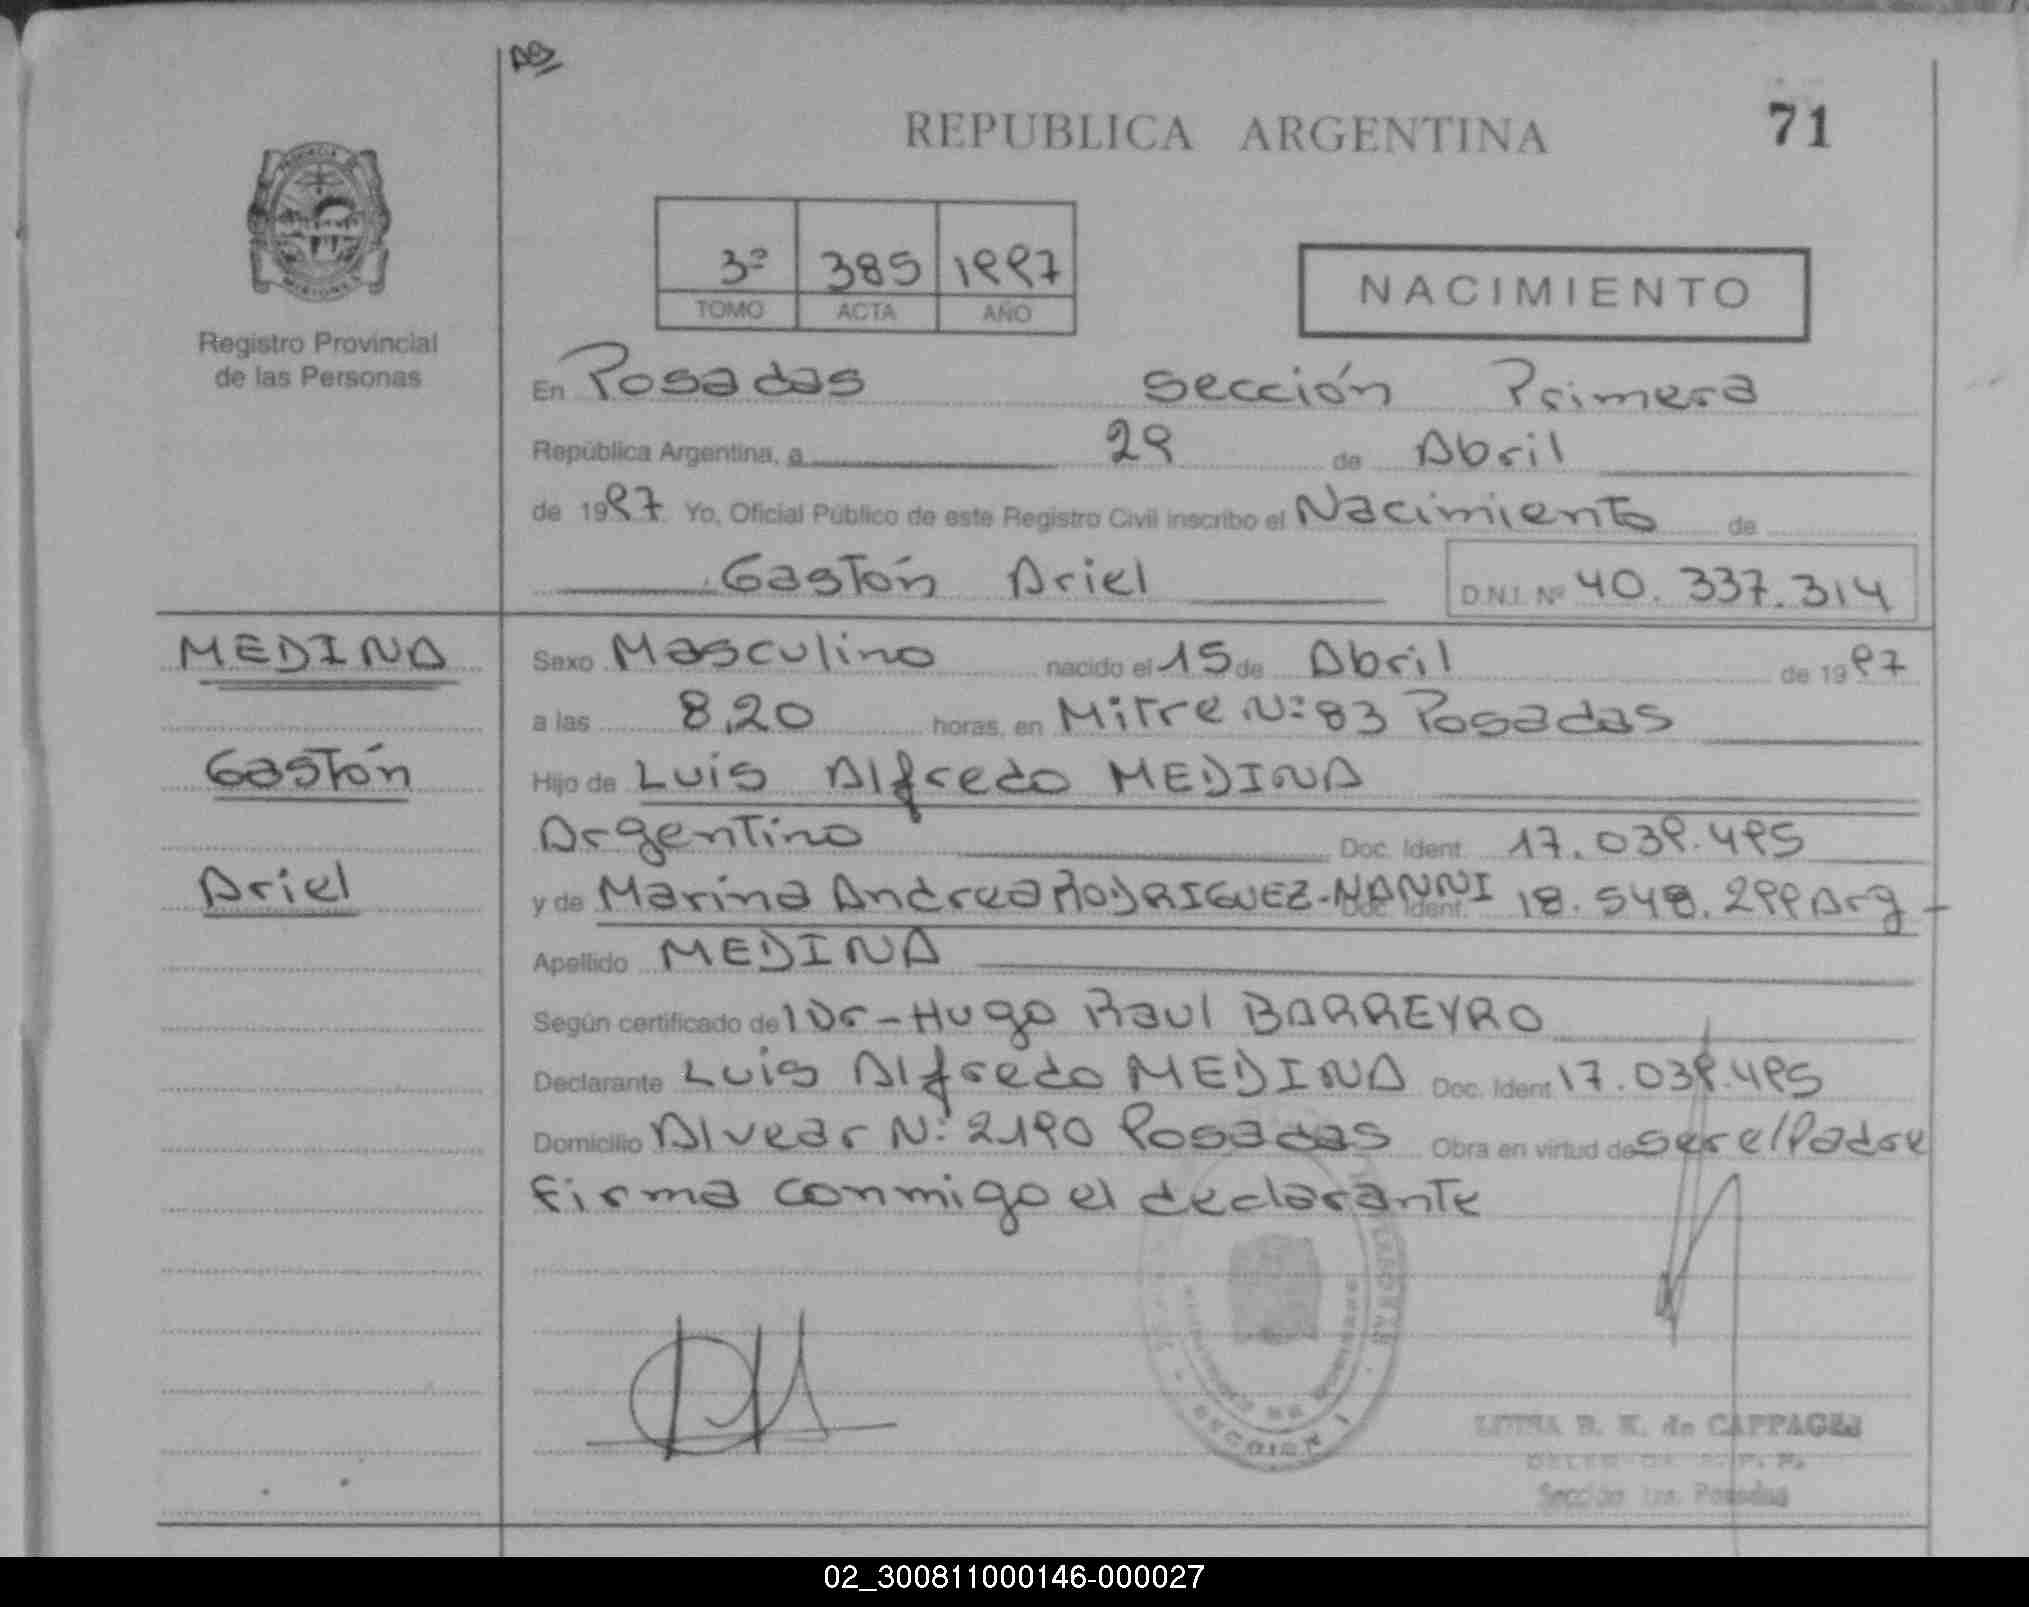 REPUBLICA ARGENTINA
71
Registro Provincial
de las Personas
3º 385 1997
TOMO ACTA AÑO
NACIMIENTO
En Posadas Sección Primera
República Argentina, a 29 de Abril
de 1997 Yo, Oficial Público de este Registro Civil inscribo el Nacimiento de
Gastón Ariel
D.N.I. Nº 40.337.314
MEDINA
Gastón
Ariel
Sexo Masculino nacido el 15 de Abril de 1997
a las 8,20 horas, en Mitre Nº 83 Posadas
Hijo de Luis Alfredo MEDINA
Argentino Doc. Ident. 17.039.495
y de Marina Andrea RODRIGUEZ-NANNI Doc. Ident. 18.548.299 Arg
Apellido MEDINA
Según certificado del Dr-Hugo Raul BARREYRO
Declarante Luis Alfredo MEDINA Doc. Ident. 17.039.495
Domicilio Alvear Nº 2190 Posadas Obra en virtud de ser el Padre
Firma conmigo el declarante
SECCION 1
B. K. de CAPPAGLI
Sección 1ra. Posadas
02_300811000146-000027